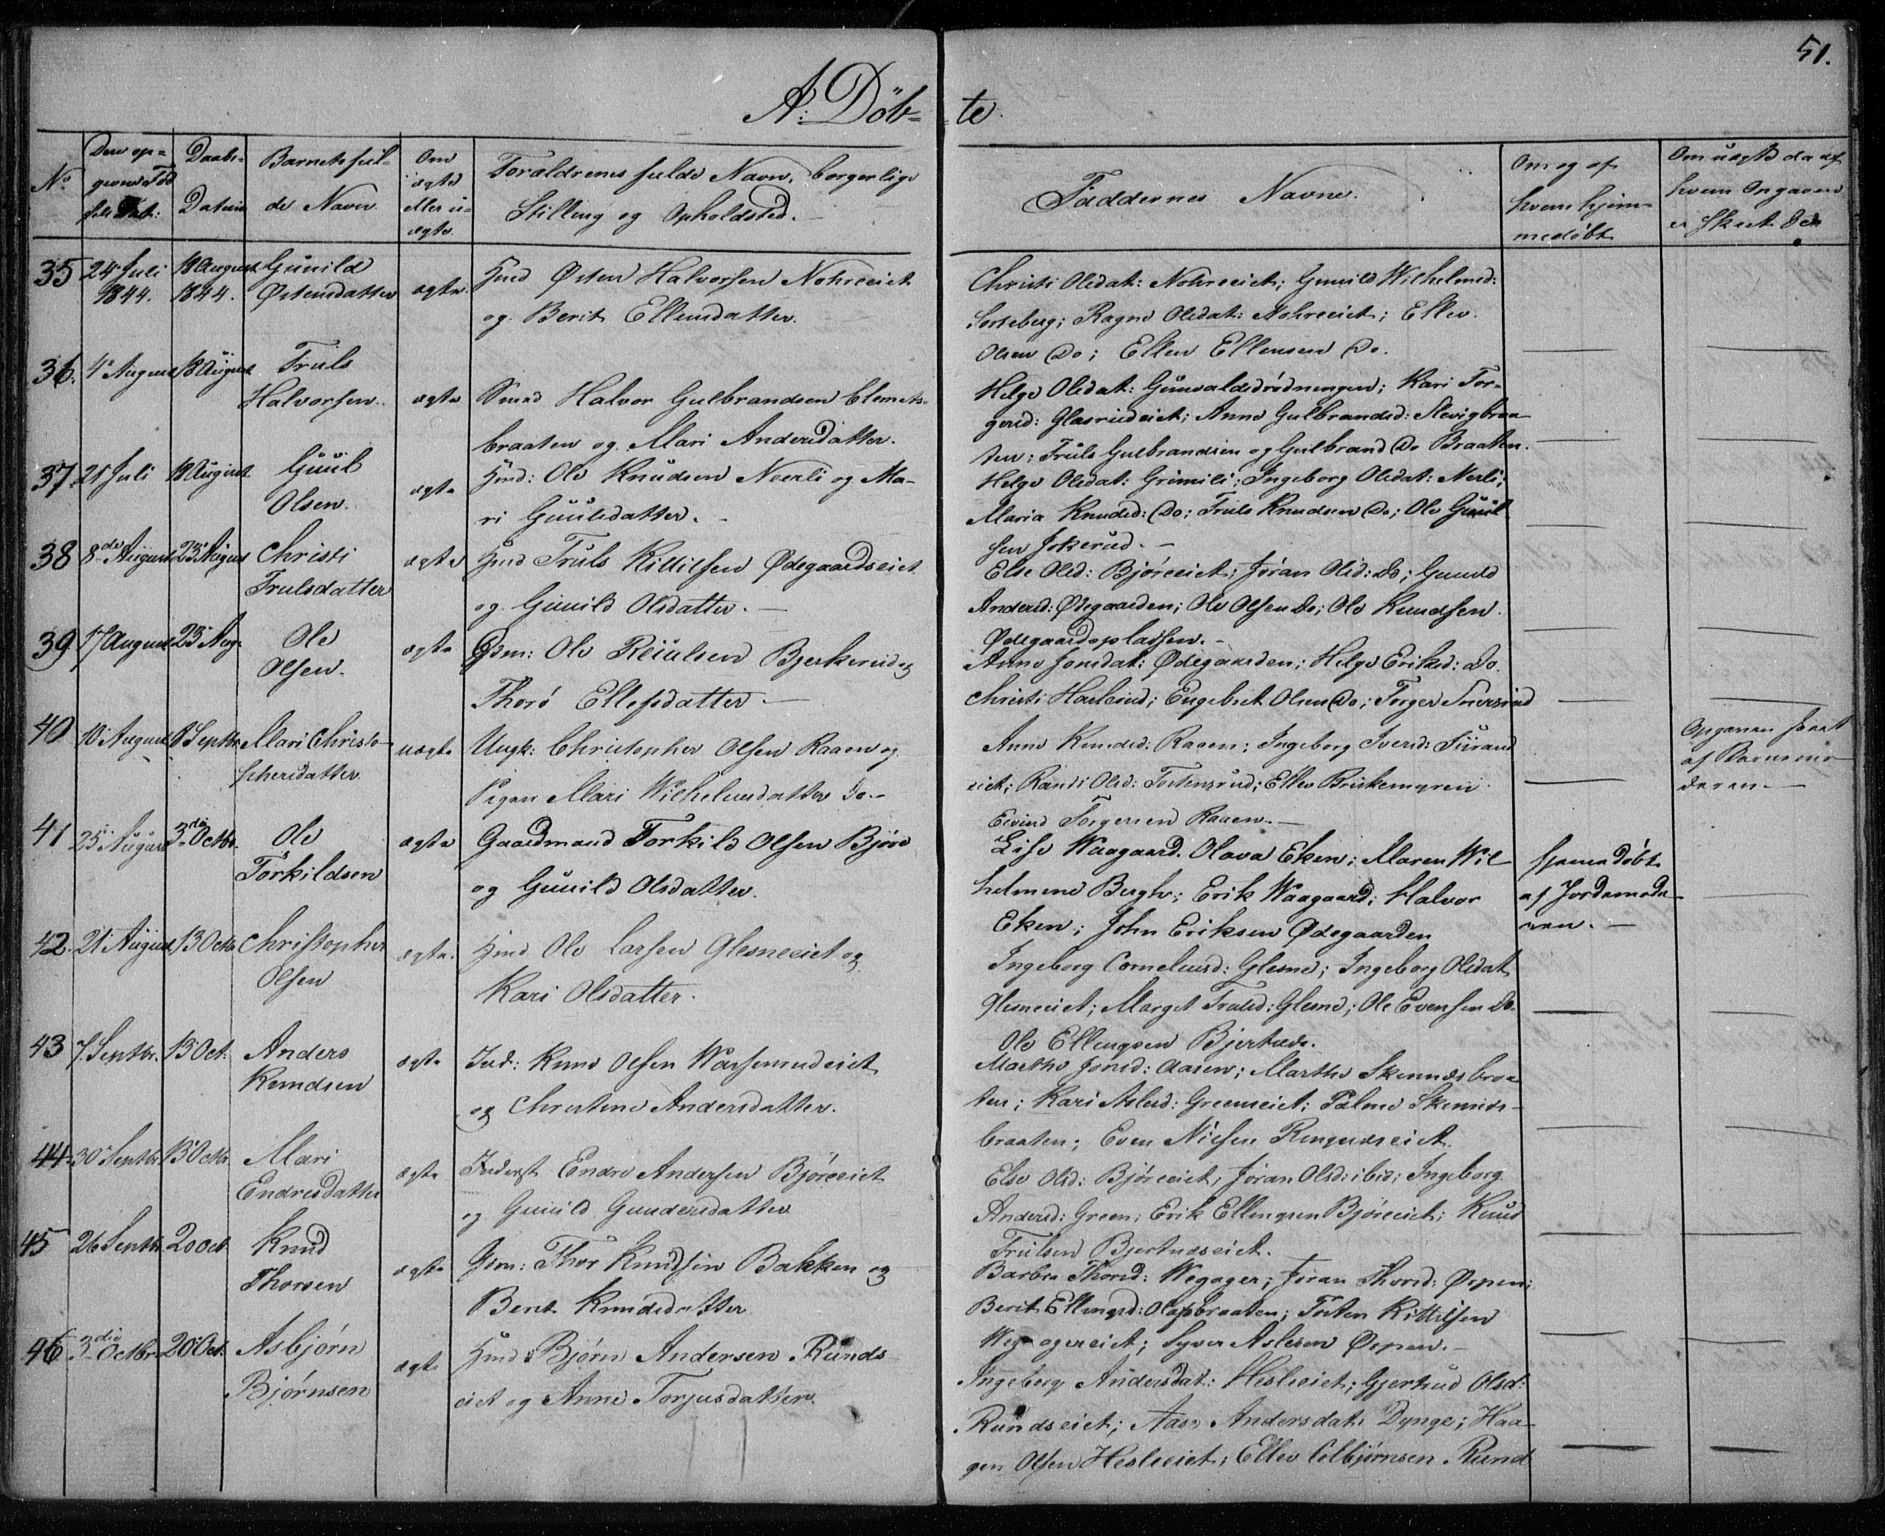 51.
A. Döb-
te.
No
Den op-
givne Fød
Daabs-
Datum
Barnets ful-
de Navn
Om
ægte
eller u-
ægte
Forældrenes fulde Navn, borgerlige
Stilling og Opholdsted.
Faddernes Navne.
Om og af
hvem hjem-
medøbt
Om uægte da af
hvem Angaven
er skeet
35 24 Juli 18 August Gunild
1844. 1844. Østensdatter ægte
Østen Halvorsen Nohreeiet
og Berit Ellensdatter.
Christi Olsdat: Nohreeiet; Gunild Wilhelmsd:
Ragne Olsdat: Nohreeiet;
Olsen Do; Ellen Ellensen Do.
36. 4 August 18 August Truls
Halvorsen. ægte
Halvor Gulbrandsen Clemets-
braaten og Mari Andersdatter.
Helge Olsdat: Kari Tor-
gersd: Glasrudeiet; Anne Gulbrandsd:
ten; Truls Gulbrandsen og Gulbrand Do Braaten.
37 21 Juli 18 August Guul
Olsen. ægte
Hmd: Ole Knudsen Neerli og Ma-
ri Guulsdatter.
Helge Olsdat: Grimeli; Ingeborg Olsdat: Nerli;
Maria Knudsd: Do; Truls Knudsen Do; Ole Guul
sen Jokerud.
38 8de August 23 August Christi
Trulsdatter ægte
Hmd Truls Kittilsen Ødegaardseiet
og Gunild Olsdatter.
Else Olsd: Bjøreeiet; Jøran Olsd: Do; Gunild
Andersd: Ødegaarden; Ole Olsen Do; Ole Knudsen
Ødegaardspladsen.
39 17 August 23 Aug. Ole
Olsen. ægte
Gsm: Ole Bjerkerud og
Thorø Ellefsdatter
Anne Jonsdat: Ødegaarden; Helge Eriksd: Do.
Christi Engebret Olsen Do; Torger
40 10 August 8 Septbr. Mari Christo-
phersdatter. uægte
Ungk: Christopher Olsen Raaen og
Pigen Mari Wilhelmsdatter Do.
Anne Knudsd: Raaen; Ingeborg Iversd:
eiet; Randi Olsd:
Eivind Torgersen Raaen.
Opgaven skeet
af Barnemo
deren.
41 25 August 3die Octbr. Ole
Torkildsen ægte
Gaardmand Torkild Olsen Bjøre
og Gunild Olsdatter.
Lise Waagaard. Olava Eken; Maren Wil
helmine Bergh; Erik Waagaard; Halvor
Eken; John Eriksen Ødegaarden
hjemmedøbt
af Jordemode
ren.
42. 21 August 13 Octb. Christopher
Olsen ægte.
Hmd Ole Larsen Glesneeiet og
Kari Olsdatter.
Ingeborg Corneliusd: Glesne; Ingeborg Olsdat
Glesneeiet; Marget Trulsd: Glesne; Ole Evensen Do.
Ole Ellingsen Bjertnæs.
43 7 Septbr. 13 Oct: Anders
Knudsen ægte
Ind: Knud Olsen
og Christine Andersdatter.
Marthe Jonsd: Aasen; Marthe Skinnesbraa
ten; Kari Aslesd: Greeneeiet; Palme Skinnes-
braaten; Even Nielsen Ringnæseiet.
44. 30 Septbr. 13 Octb. Mari
Endresdatter ægte
Inderst Endre Andersen Bjøreeiet
og Gunild Gundersdatter
Else Olsd: Bjøreeiet, Jøran Olsd: ibid; Ingeborg
Andersd: Green; Erik Ellingsen Bjøreeiet; Knud
Trulsen Bjertnæseiet.
45 26 Septbr. 20 Oct Knud
Thorsen ægte
Gsm: Thor Knudsen Bakken og
Berit Knudsdatter
Barbra Thorsd: Wegager; Jøran Thorsd: Ørpen;
Berit Ellingsd: Olafsbraaten; Torsten Kittilsen
Wegagereiet; Syver Aslesen Ørpen.
46 3die Octbr. 20 Oct. Asbjørn
Bjørnsen ægte
Hmd: Bjørn Andersen Runds
eiet og Anne Torjusdatter.
Ingeborg Andersdat: Hesleeiet; Gjertrud Olsd:
Rundseiet; Aase Andersdat: Dynge; Haa-
gen Olsen Hesleeiet; Ellev Colbjørnsen Rund